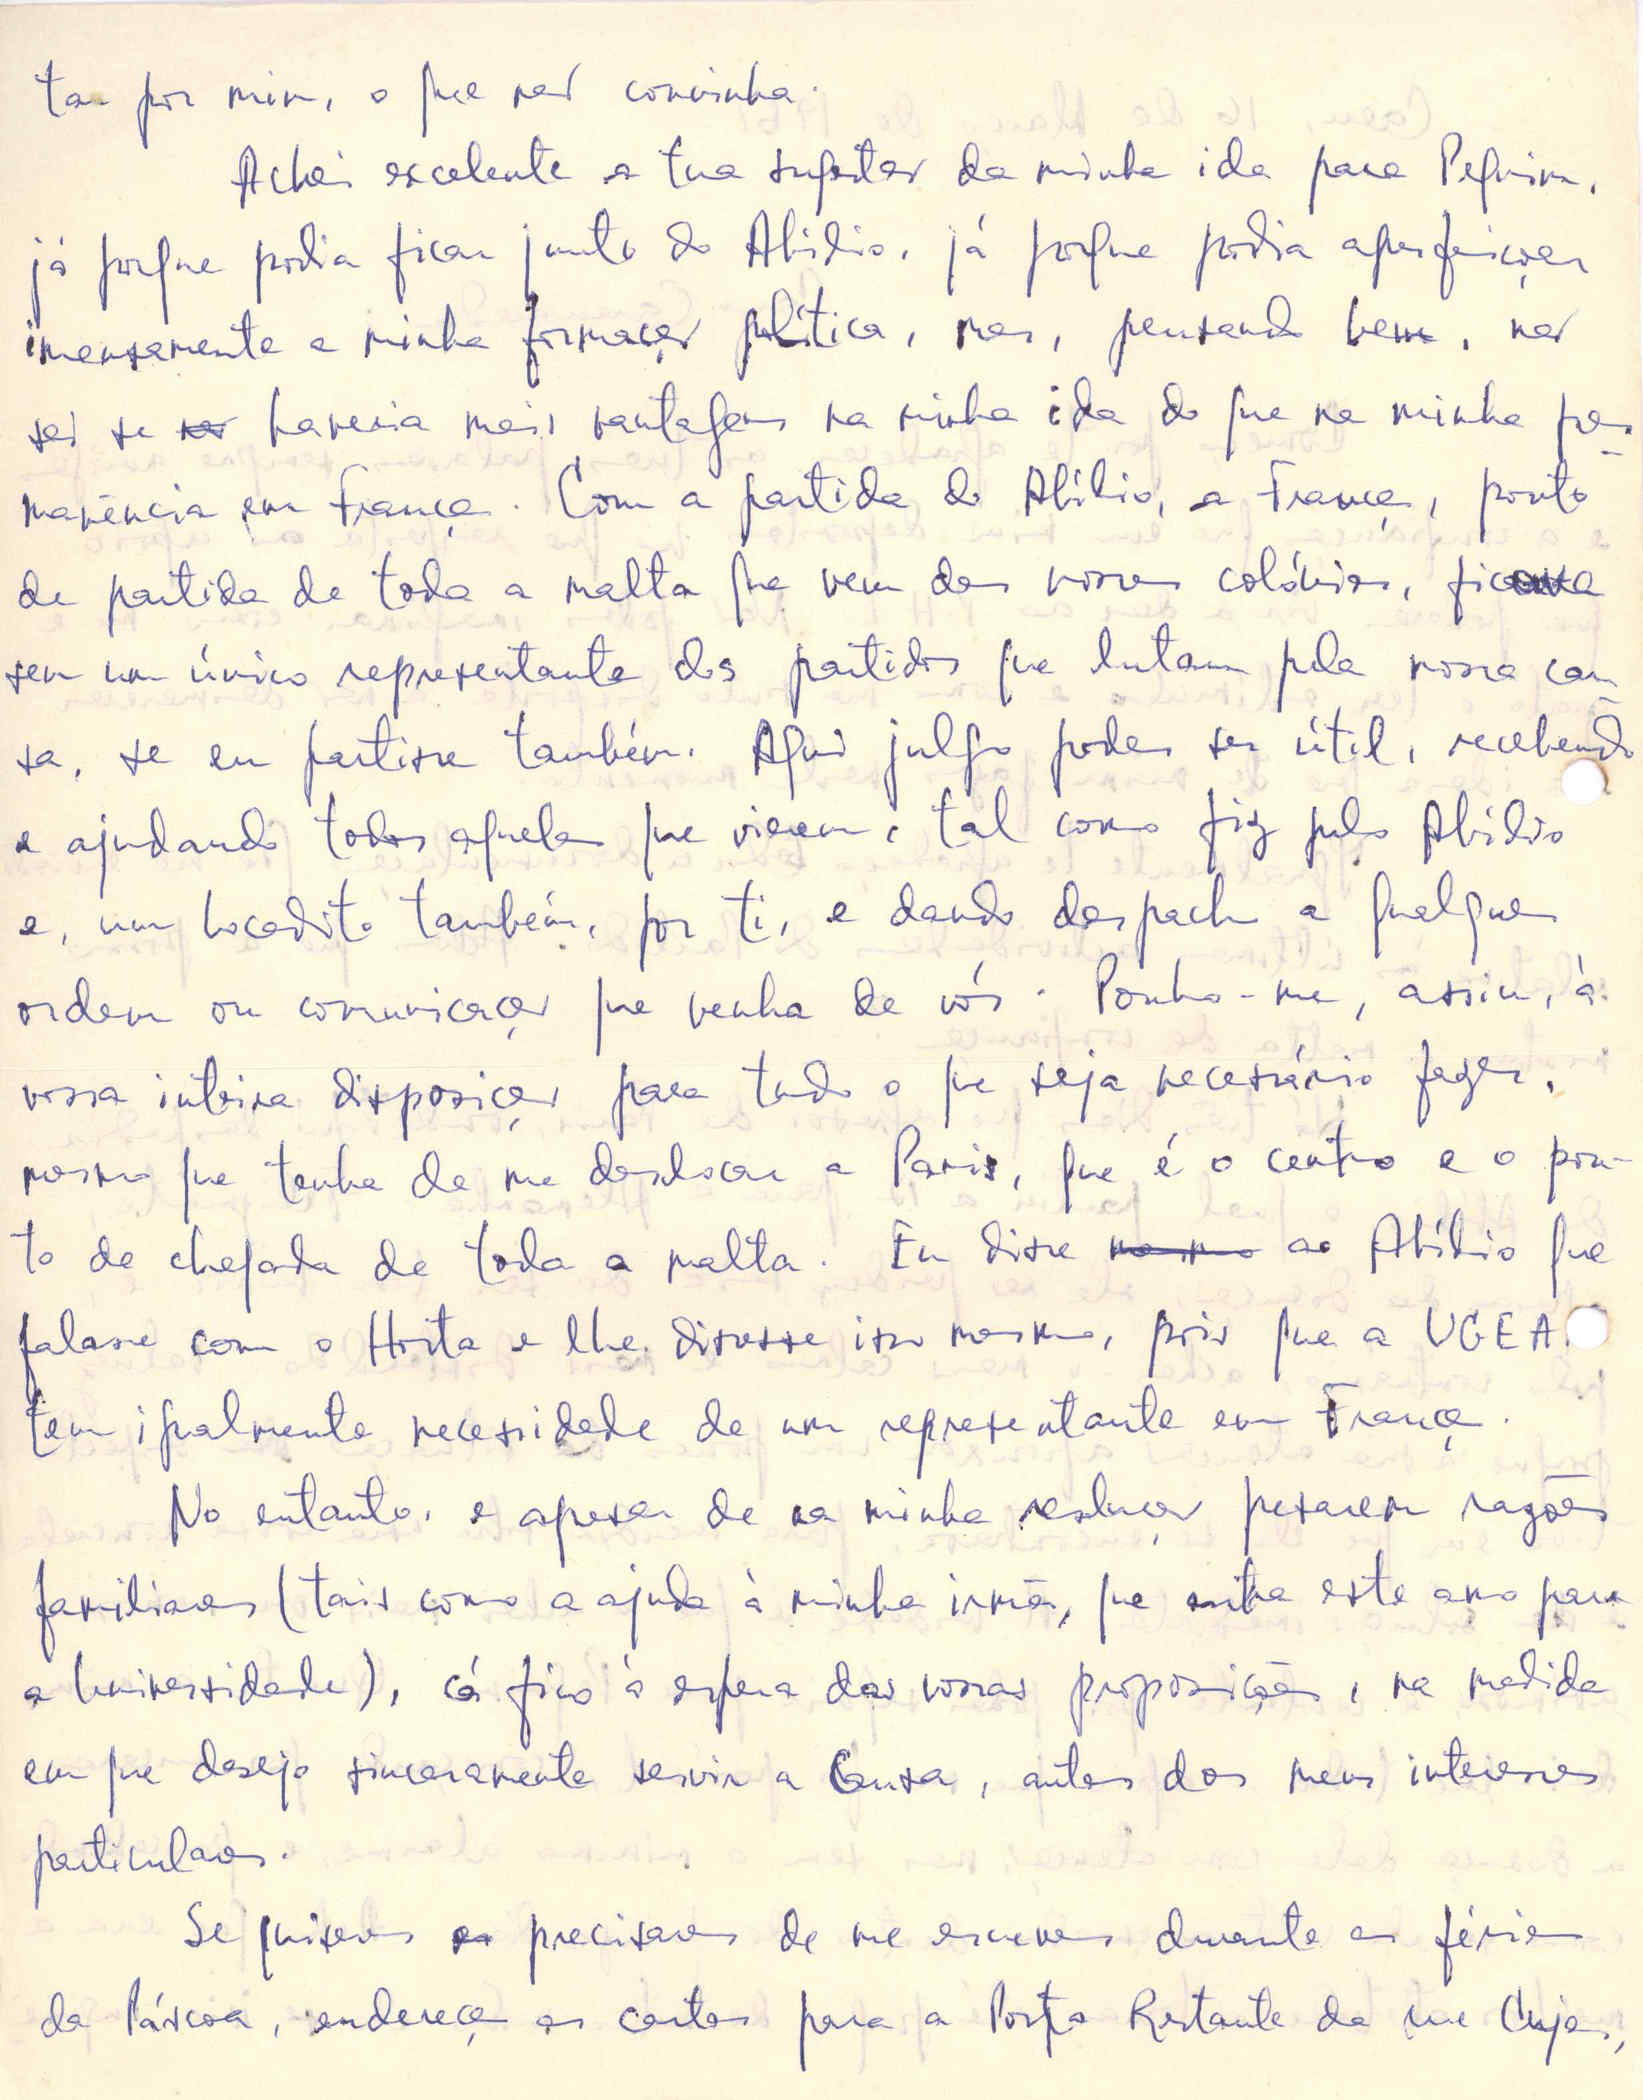 tar por mim, o que não convinha.
Achei excelente a tua sugestão da minha ida para Pequim,
já porque podia ficar junto do Abílio, já porque podia aperfeiçoar
imensamente a minha formação política, mas, pensando bem, não
sei se haveria mais vantagens na minha ida do que na minha per-
manência em França. Com a partida do Abílio, a França, ponto
de partida de toda a malta que vem das nossas colónias, ficava
sem um único representante dos partidos que lutam pela nossa cau-
sa, se eu partisse também. Aqui julgo poder ser útil, recebendo
e ajudando todos aqueles que vierem, tal como fiz pelo Abílio
e, um bocadito também, por ti, e dando despacho a qualquer
ordem ou comunicação que venha de vós. Ponho-me, assim, à
vossa inteira disposição para tudo o que seja necessário fazer,
mesmo que tenha de me deslocar a Paris, que é o centro e o pon-
to de chegada de toda a malta. Eu disse mesmo ao Abílio que
falasse com o Horta e lhe dissesse isso mesmo, pois que a UGEA
tem igualmente necessidade de um representante em França.
No entanto, e apesar de na minha resolução pesarem razões
familiares (tais como a ajuda à minha irmã, que entra este ano para
a Universidade), cá fico à espera das vossas proposições, na medida
em que desejo sinceramente servir a Causa, antes dos meus interesses
particulares.
Se quiseres ou precisares de me escrever durante as férias
da Páscoa, endereça as cartas para a Posta Restante da rue Cujas,